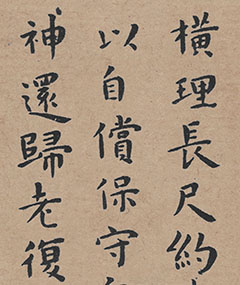 橫理長尺約
以自償保守
神還歸老復